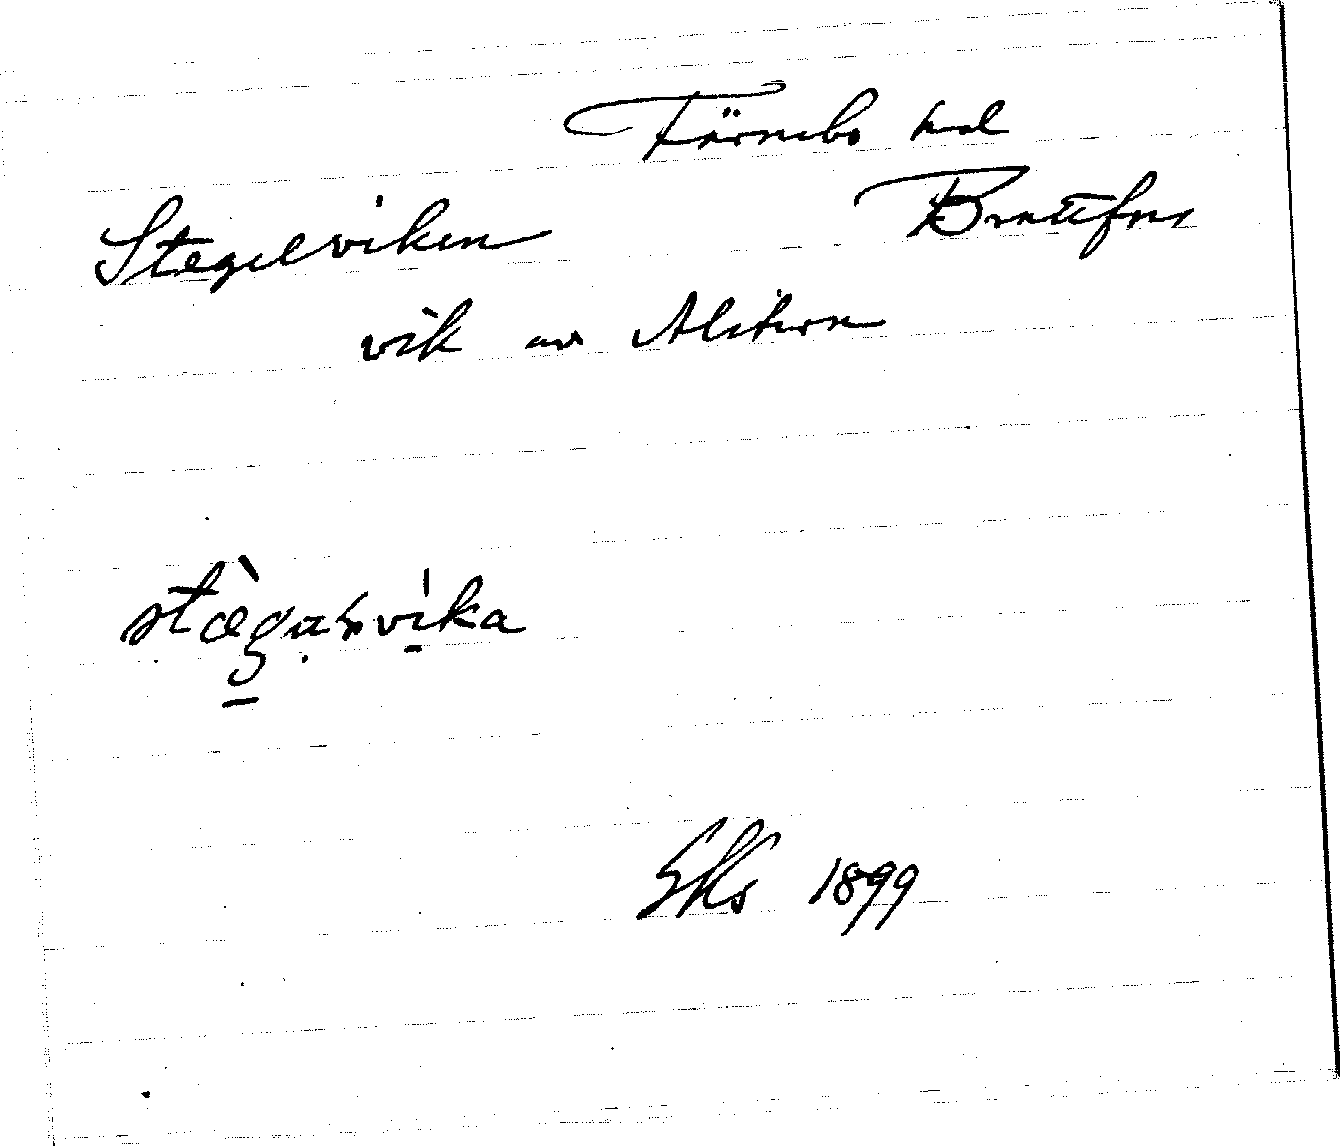 Färnebo hd
Stegelviken Brattfors
vik av Alstern
stægaɽvika
Eks 1899